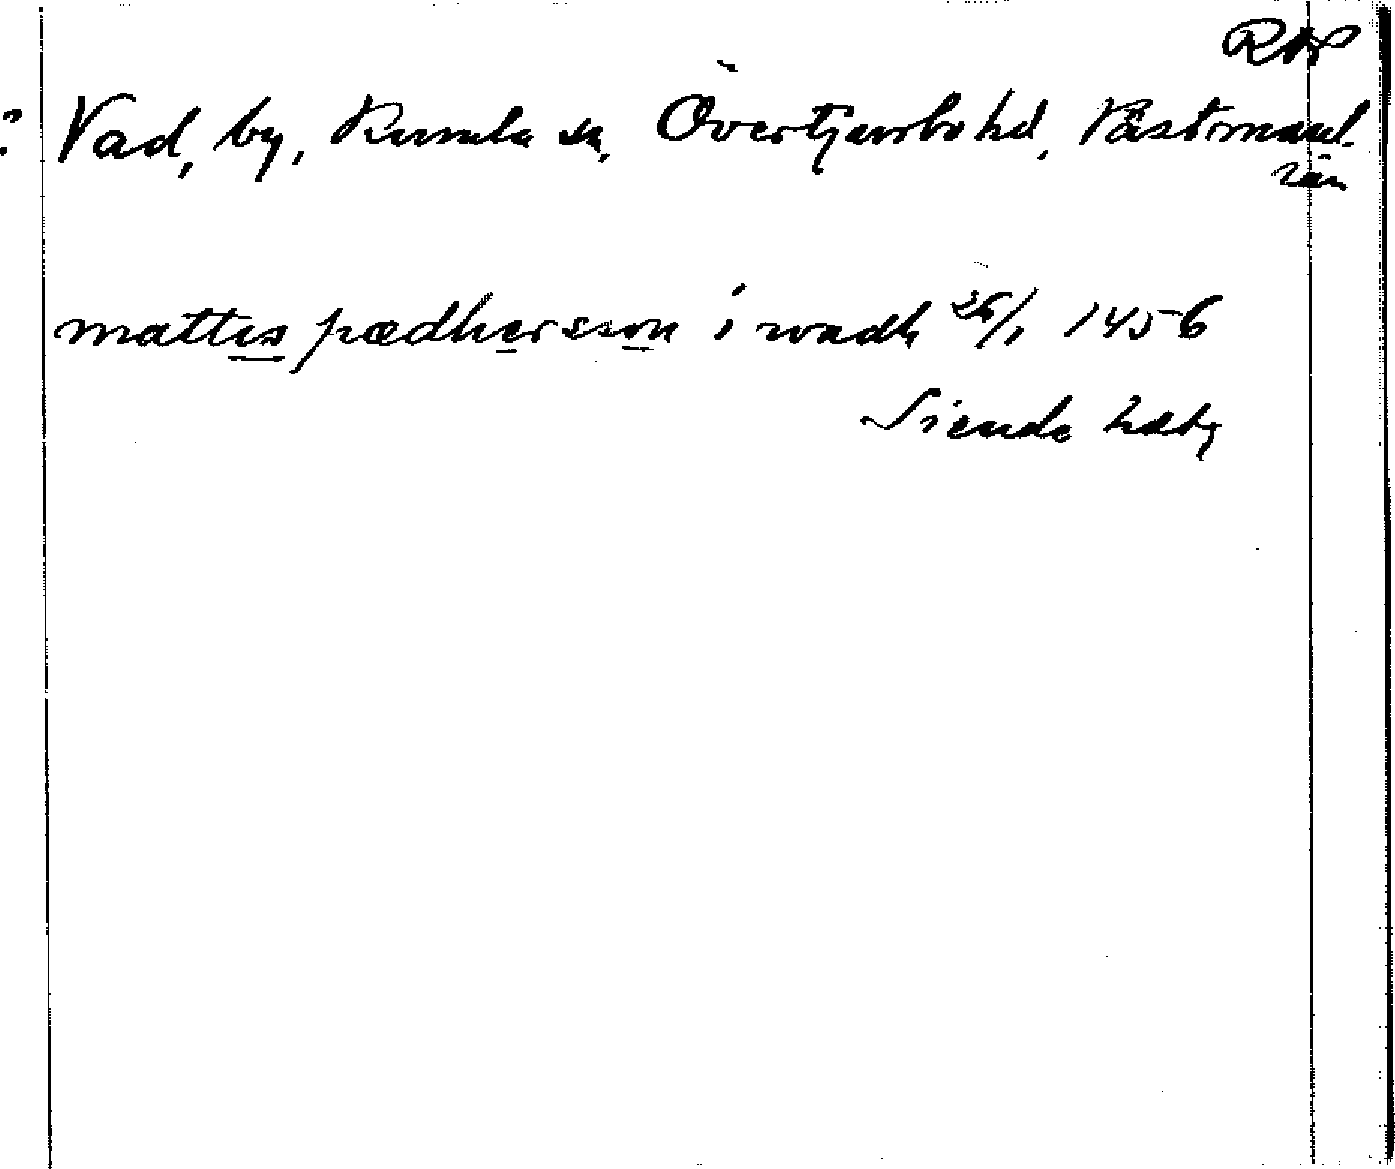 RAP
? Vad, by, Kumla sn, Övertjurbo hd, Västmanl.
län
mattis pædhersson i wadh 26/1 1456
Siende häby